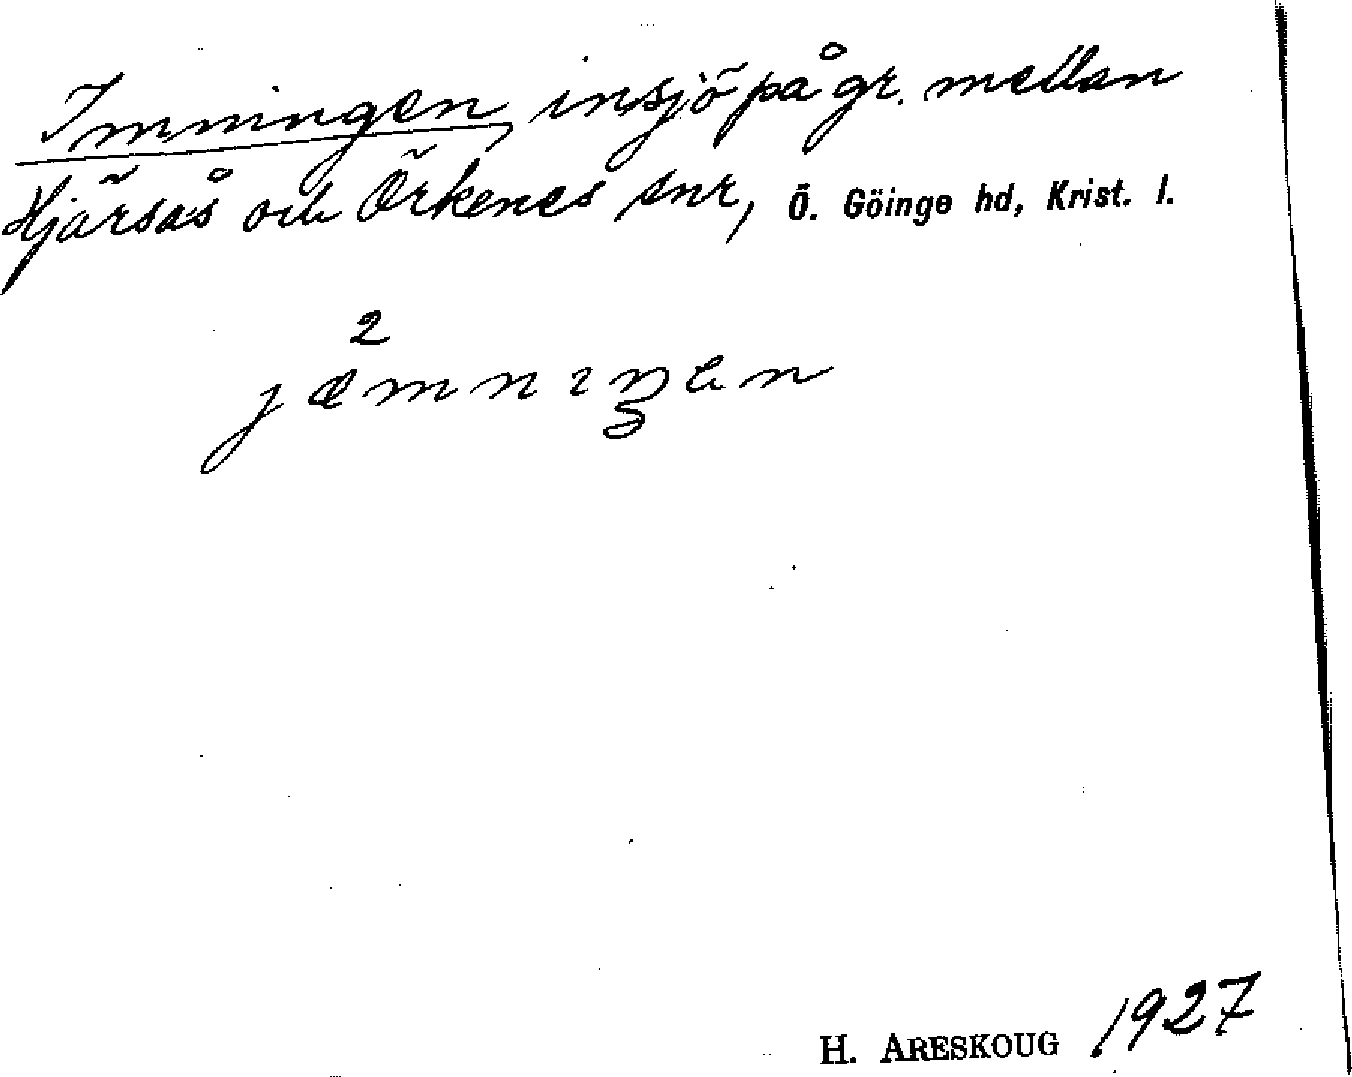 Imningen, insjö på gr. mellan
Hjärsås och Örkeneds snr, Ö. Göinge hd, Krist. l.
2
jæmnıŋen
H. ARESKOUG 1927